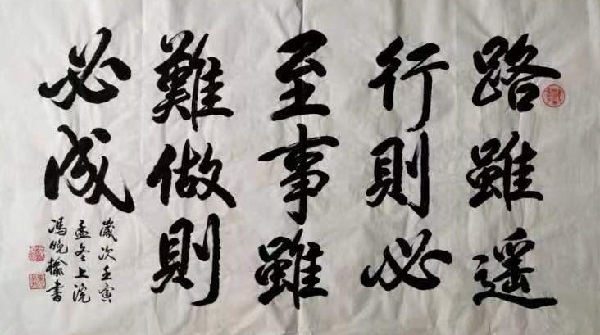 路雖遥
行則必
至事雖
難做則
必成
歲次壬寅
孟冬上浣
馮曉榆書